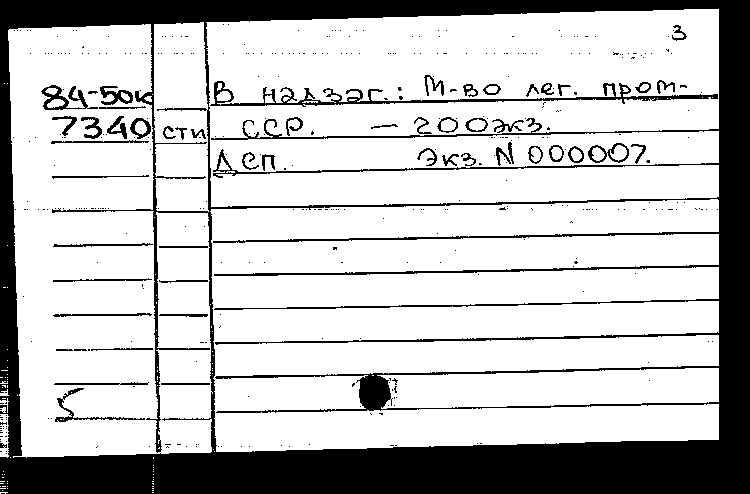 3
84-50к В надзаг.: М-во лег. пром-
7340 сти ССР. — 200экз.
Дсп. Экз. N 000007.
5